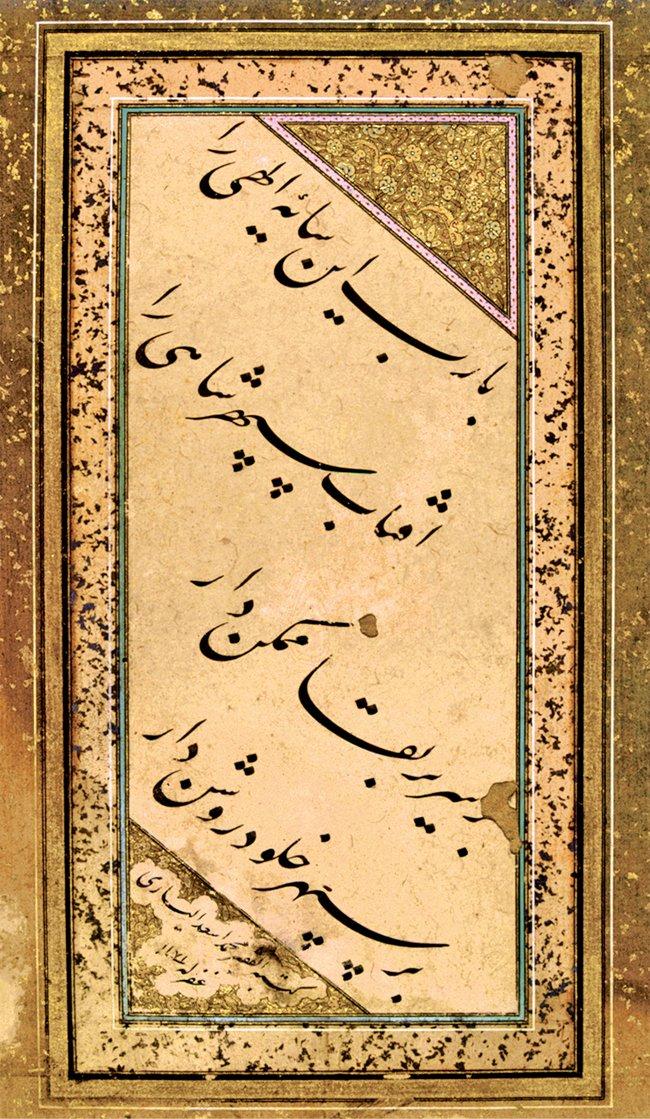 یارب این سایۀ الهی را
آفتاب سپهر شاهی را
بر سریر بقا ممکن دار
بر سپهر خلود روشن دار
کتبه الفقیر محمد اسعد الیساری
غفر له